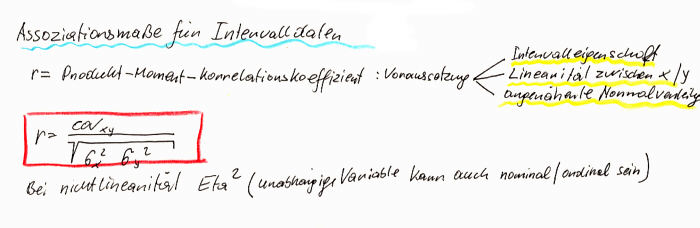 Assoziationsmaße für Intervalldaten
r = Produkt-Moment-Korrelationskoeffizient : Voraussetzung
Intervalleigenschaft
Linearität zwischen x/y
angenäherte Normalverteilg
r = cov_xy / √(σ_x² σ_y²)
Bei nichtlinearität Eta² (unabhängige Variable kann auch nominal/ordinal sein)